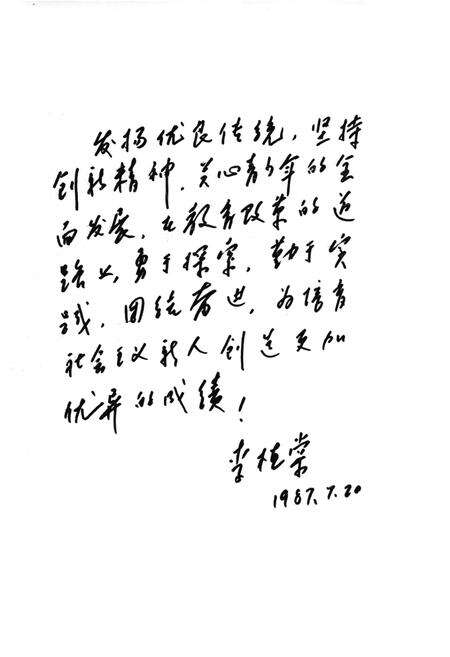 发扬优良传统，坚持
创新精神，关心青少年的全
面发展，在教育改革的道
路上，勇于探索，勤于实
践，团结奋进，为培育
社会主义新人创造更加
优异的成绩！
李桂棠
1987.7.20